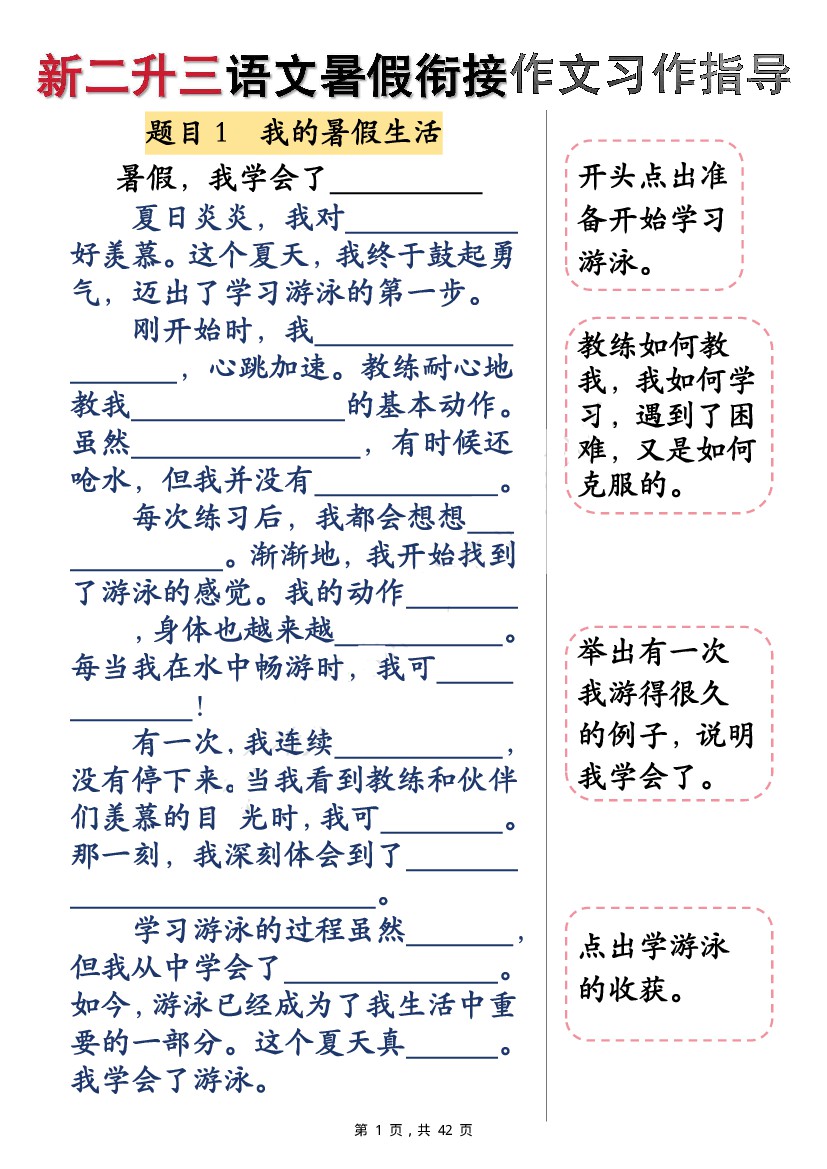 新二升三语文暑假衔接作文习作指导
题目1 我的暑假生活
暑假，我学会了__________
夏日炎炎，我对___________
好羡慕。这个夏天，我终于鼓起勇
气，迈出了学习游泳的第一步。
刚开始时，我_____________
_______，心跳加速。教练耐心地
教我______________的基本动作。
虽然_______________，有时候还
呛水，但我并没有____________。
每次练习后，我都会想想___
__________。渐渐地，我开始找到
了游泳的感觉。我的动作_______
，身体也越来越___________。
每当我在水中畅游时，我可_____
________！
有一次，我连续___________，
没有停下来。当我看到教练和伙伴
们羡慕的目 光时，我可________。
那一刻，我深刻体会到了_______
____________________。
学习游泳的过程虽然_______，
但我从中学会了______________。
如今，游泳已经成为了我生活中重
要的一部分。这个夏天真______。
我学会了游泳。
开头点出准
备开始学习
游泳。
教练如何教
我，我如何学
习，遇到了困
难，又是如何
克服的。
举出有一次
我游得很久
的例子，说明
我学会了。
点出学游泳
的收获。
第 1 页，共 42 页